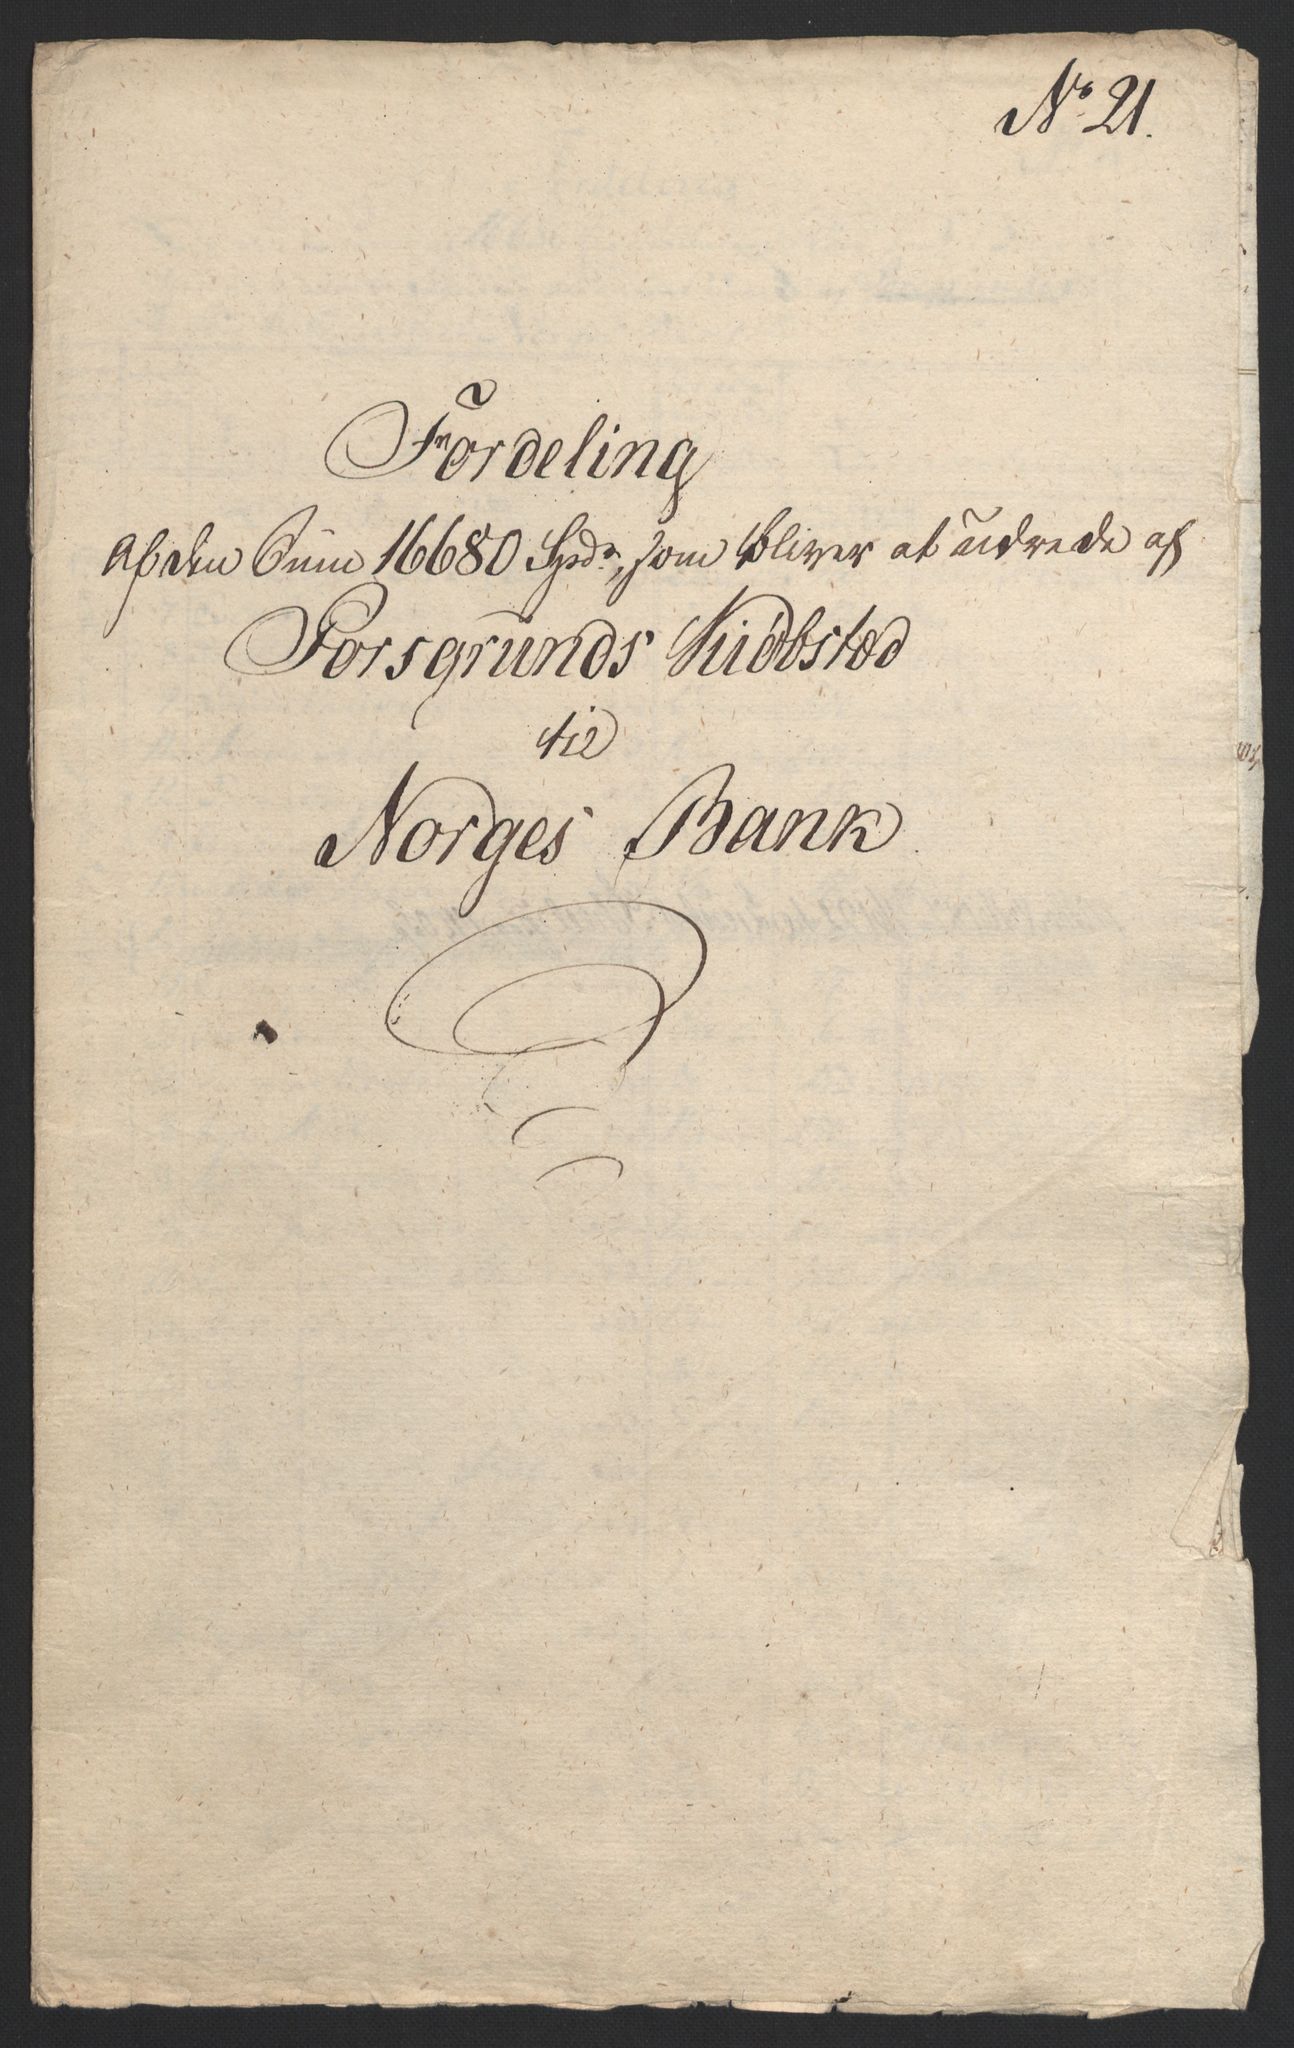 No 21.
Fordeling
af den Sum 16680 Spdr, som bliver at udrede af
Porsgrunds Kiøbstæd
til
Norges Bank.